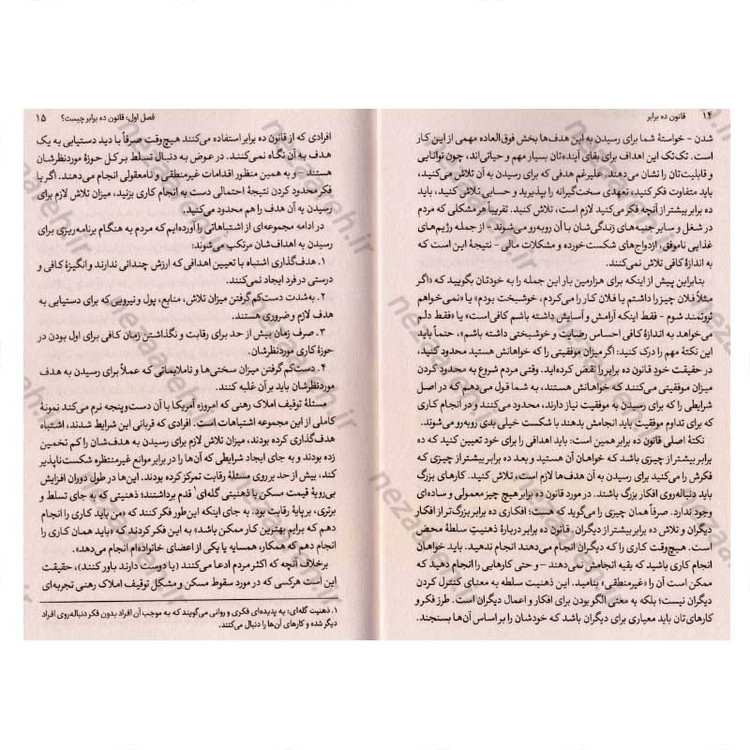 ۱۴ قانون ده برابر
شدن - خواستهٔ شما برای رسیدن به این هدف‌ها بخش فوق‌العاده مهمی از این کار
است. تک‌تک این اهداف برای بقای آینده‌تان بسیار مهم و حیاتی‌اند، چون توانایی
و قابلیت‌تان را نشان می‌دهند. علیرغم هدفی که برای رسیدن به آن تلاش می‌کنید،
باید متفاوت فکر کنید، تعهدی سخت‌گیرانه را بپذیرید و حسابی تلاش کنید، باید
ده برابر بیشتر از آنچه فکر می‌کنید لازم است، تلاش کنید. تقریباً هر مشکلی که مردم
در شغل و سایر جنبه‌های زندگی‌شان با آن روبه‌رو می‌شوند - از جمله رژیم‌های
غذایی ناموفق، ازدواج‌های شکست خورده و مشکلات مالی - نتیجهٔ این است که
به اندازهٔ کافی تلاش نمی‌کنند.
بنابراین پیش از اینکه برای هزارمین بار این جمله را به خودتان بگویید که «اگر
مثلاً فلان چیز را داشتم یا فلان کار را می‌کردم، خوشبخت بودم» یا «نمی‌خواهم
ثروتمند شوم - فقط اینکه آرامش و آسایش داشته باشم کافی است» یا «فقط دلم
می‌خواهد به اندازهٔ کافی احساس رضایت و خوشبختی داشته باشم»، حتماً باید
این نکتهٔ مهم را درک کنید: اگر میزان موفقیتی را که خواهانش هستید محدود کنید،
در حقیقت خودِ قانون ده برابر را نقض کرده‌اید. وقتی مردم شروع به محدود کردن
میزان موفقیتی می‌کنند که خواهانش هستند، به شما قول می‌دهم که در اصل
شرایطی را که برای رسیدن به موفقیت نیاز دارند، محدود می‌کنند و در انجام کاری
که برای تداوم موفقیت باید انجامش بدهند با شکست خیلی بدی روبه‌رو می‌شوند.
نکتهٔ اصلی قانون ده برابر همین است: باید اهدافی را برای خود تعیین کنید که ده
برابر بیشتر از چیزی باشد که خواهان آن هستید و بعد ده برابر بیشتر از چیزی که
فکرش را می‌کنید برای رسیدن به آن هدف‌ها لازم است، تلاش کنید. کارهای بزرگ
باید دنباله‌روی افکار بزرگ باشند. در مورد قانون ده برابر هیچ چیز معمولی و ساده‌ای
وجود ندارد. صرفاً همان چیزی را می‌گوید که هست: افکاری ده برابر بزرگ‌تر از افکار
دیگران و تلاش ده برابر بیشتر از دیگران. قانون ده برابر دربارهٔ ذهنیتِ سلطهٔ محض
است. هیچ‌وقت کاری را که دیگران انجام می‌دهند انجام ندهید. باید خواهان
انجام کاری باشید که بقیه انجامش نمی‌دهند - و حتی کارهایی را انجام دهید که
ممکن است آن را «غیرمنطقی» بنامید. این ذهنیت سلطه به معنای کنترل کردن
دیگران نیست؛ بلکه به معنی الگو بودن برای افکار و اعمال دیگران است. طرز فکر و
کارهای‌تان باید معیاری برای دیگران باشد که خودشان را بر اساس آن‌ها بسنجند.
فصل اول: قانون ده برابر چیست؟ ۱۵
افرادی که از قانون ده برابر استفاده می‌کنند هیچ‌وقت صرفاً با دید دستیابی به یک
هدف به آن نگاه نمی‌کنند. در عوض به دنبال تسلط بر کل حوزهٔ موردنظرشان
هستند - و به همین منظور اقدامات غیرمنطقی و نامعقولی انجام می‌دهند. اگر با
فکر محدود کردن نتیجهٔ احتمالی دست به انجام کاری بزنید، میزان تلاش لازم برای
رسیدن به آن هدف را هم محدود می‌کنید.
در ادامه مجموعه‌ای از اشتباهاتی را آورده‌ایم که مردم به هنگام برنامه‌ریزی برای
رسیدن به اهداف‌شان مرتکب می‌شوند:
۱. هدف‌گذاری اشتباه با تعیین اهدافی که ارزش چندانی ندارند و انگیزهٔ کافی و
درستی در فرد ایجاد نمی‌کنند.
۲. به‌شدت دست‌کم گرفتن میزان تلاش، منابع، پول و نیرویی که برای دستیابی به
هدف لازم و ضروری هستند.
۳. صرف زمان بیش از حد برای رقابت و نگذاشتن زمان کافی برای اول بودن در
حوزهٔ کاری موردنظرشان.
۴. دست‌کم گرفتن میزان سختی‌ها و ناملایماتی که عملاً برای رسیدن به هدف
موردنظرشان باید بر آن غلبه کنند.
مسئلهٔ توقیف املاک رهنی که امروزه آمریکا با آن دست‌وپنجه نرم می‌کند نمونهٔ
کاملی از این مجموعه اشتباهات است. افرادی که قربانی این شرایط شدند، اشتباه
هدف‌گذاری کرده بودند، میزان تلاش لازم برای رسیدن به هدف‌شان را کم تخمین
زده بودند و به جای ایجاد شرایطی که آن‌ها را در برابر موانع غیرمنتظره شکست‌ناپذیر
کند، بیش از حد بر روی مسئلهٔ رقابت تمرکز کرده بودند. این‌ها در طول دوران افزایش
بی‌رویهٔ قیمت مسکن با ذهنیتی گله‌ای۱ قدم برداشتند؛ ذهنیتی که به جای تسلط و
برتری، بر پایهٔ رقابت بود. به جای اینکه این‌طور فکر کنند که «من باید کاری را انجام
دهم که برایم بهترین کار ممکن باشد» به این فکر کردند که «باید همان کاری را
انجام دهم که همکار، همسایه یا یکی از اعضای خانواده‌ام انجام می‌دهد».
برخلاف آنچه که اکثر مردم ادعا می‌کنند (یا دوست دارند باور کنند)، حقیقت
این است هرکسی که در مورد سقوط مسکن و مشکل توقیف املاک رهنی تجربه‌ای
۱. ذهنیت گله‌ای: به پدیده‌ای فکری و روانی می‌گویند که به موجب آن افراد بدون فکر دنباله‌روی افراد
دیگر شده و کارهای آن‌ها را دنبال می‌کنند.
nezaaeh.ir